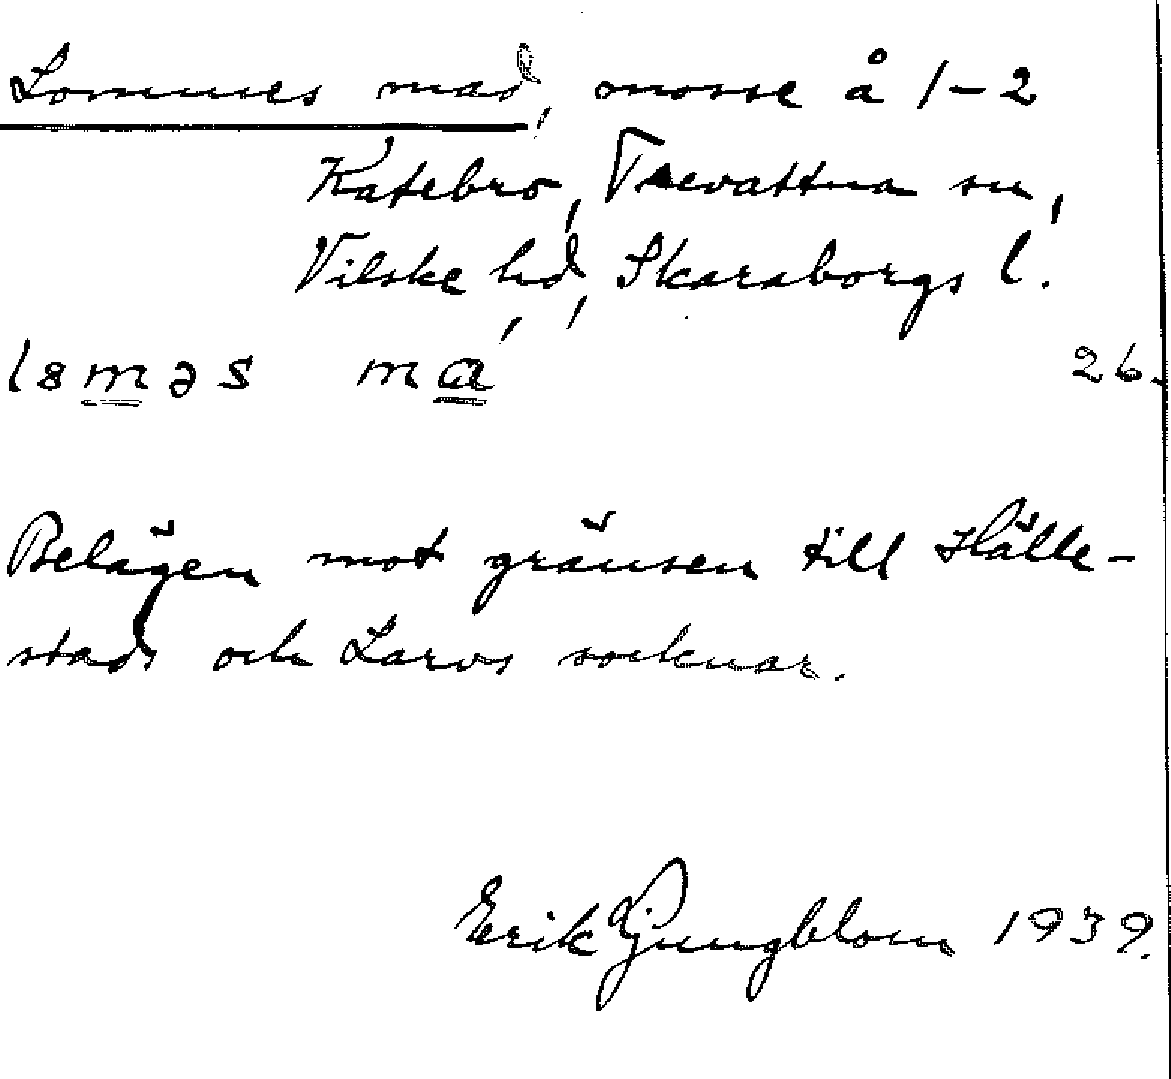 Lommes mad, mosse å 1-2
Katebro, Trevattna sn,
Vilske hd, Skaraborgs l.
l8məs mɑ́ 26.
Belägen mot gränsen till Hälle-
stads och Larvs socknar.
Erik Ljungblom 1939.